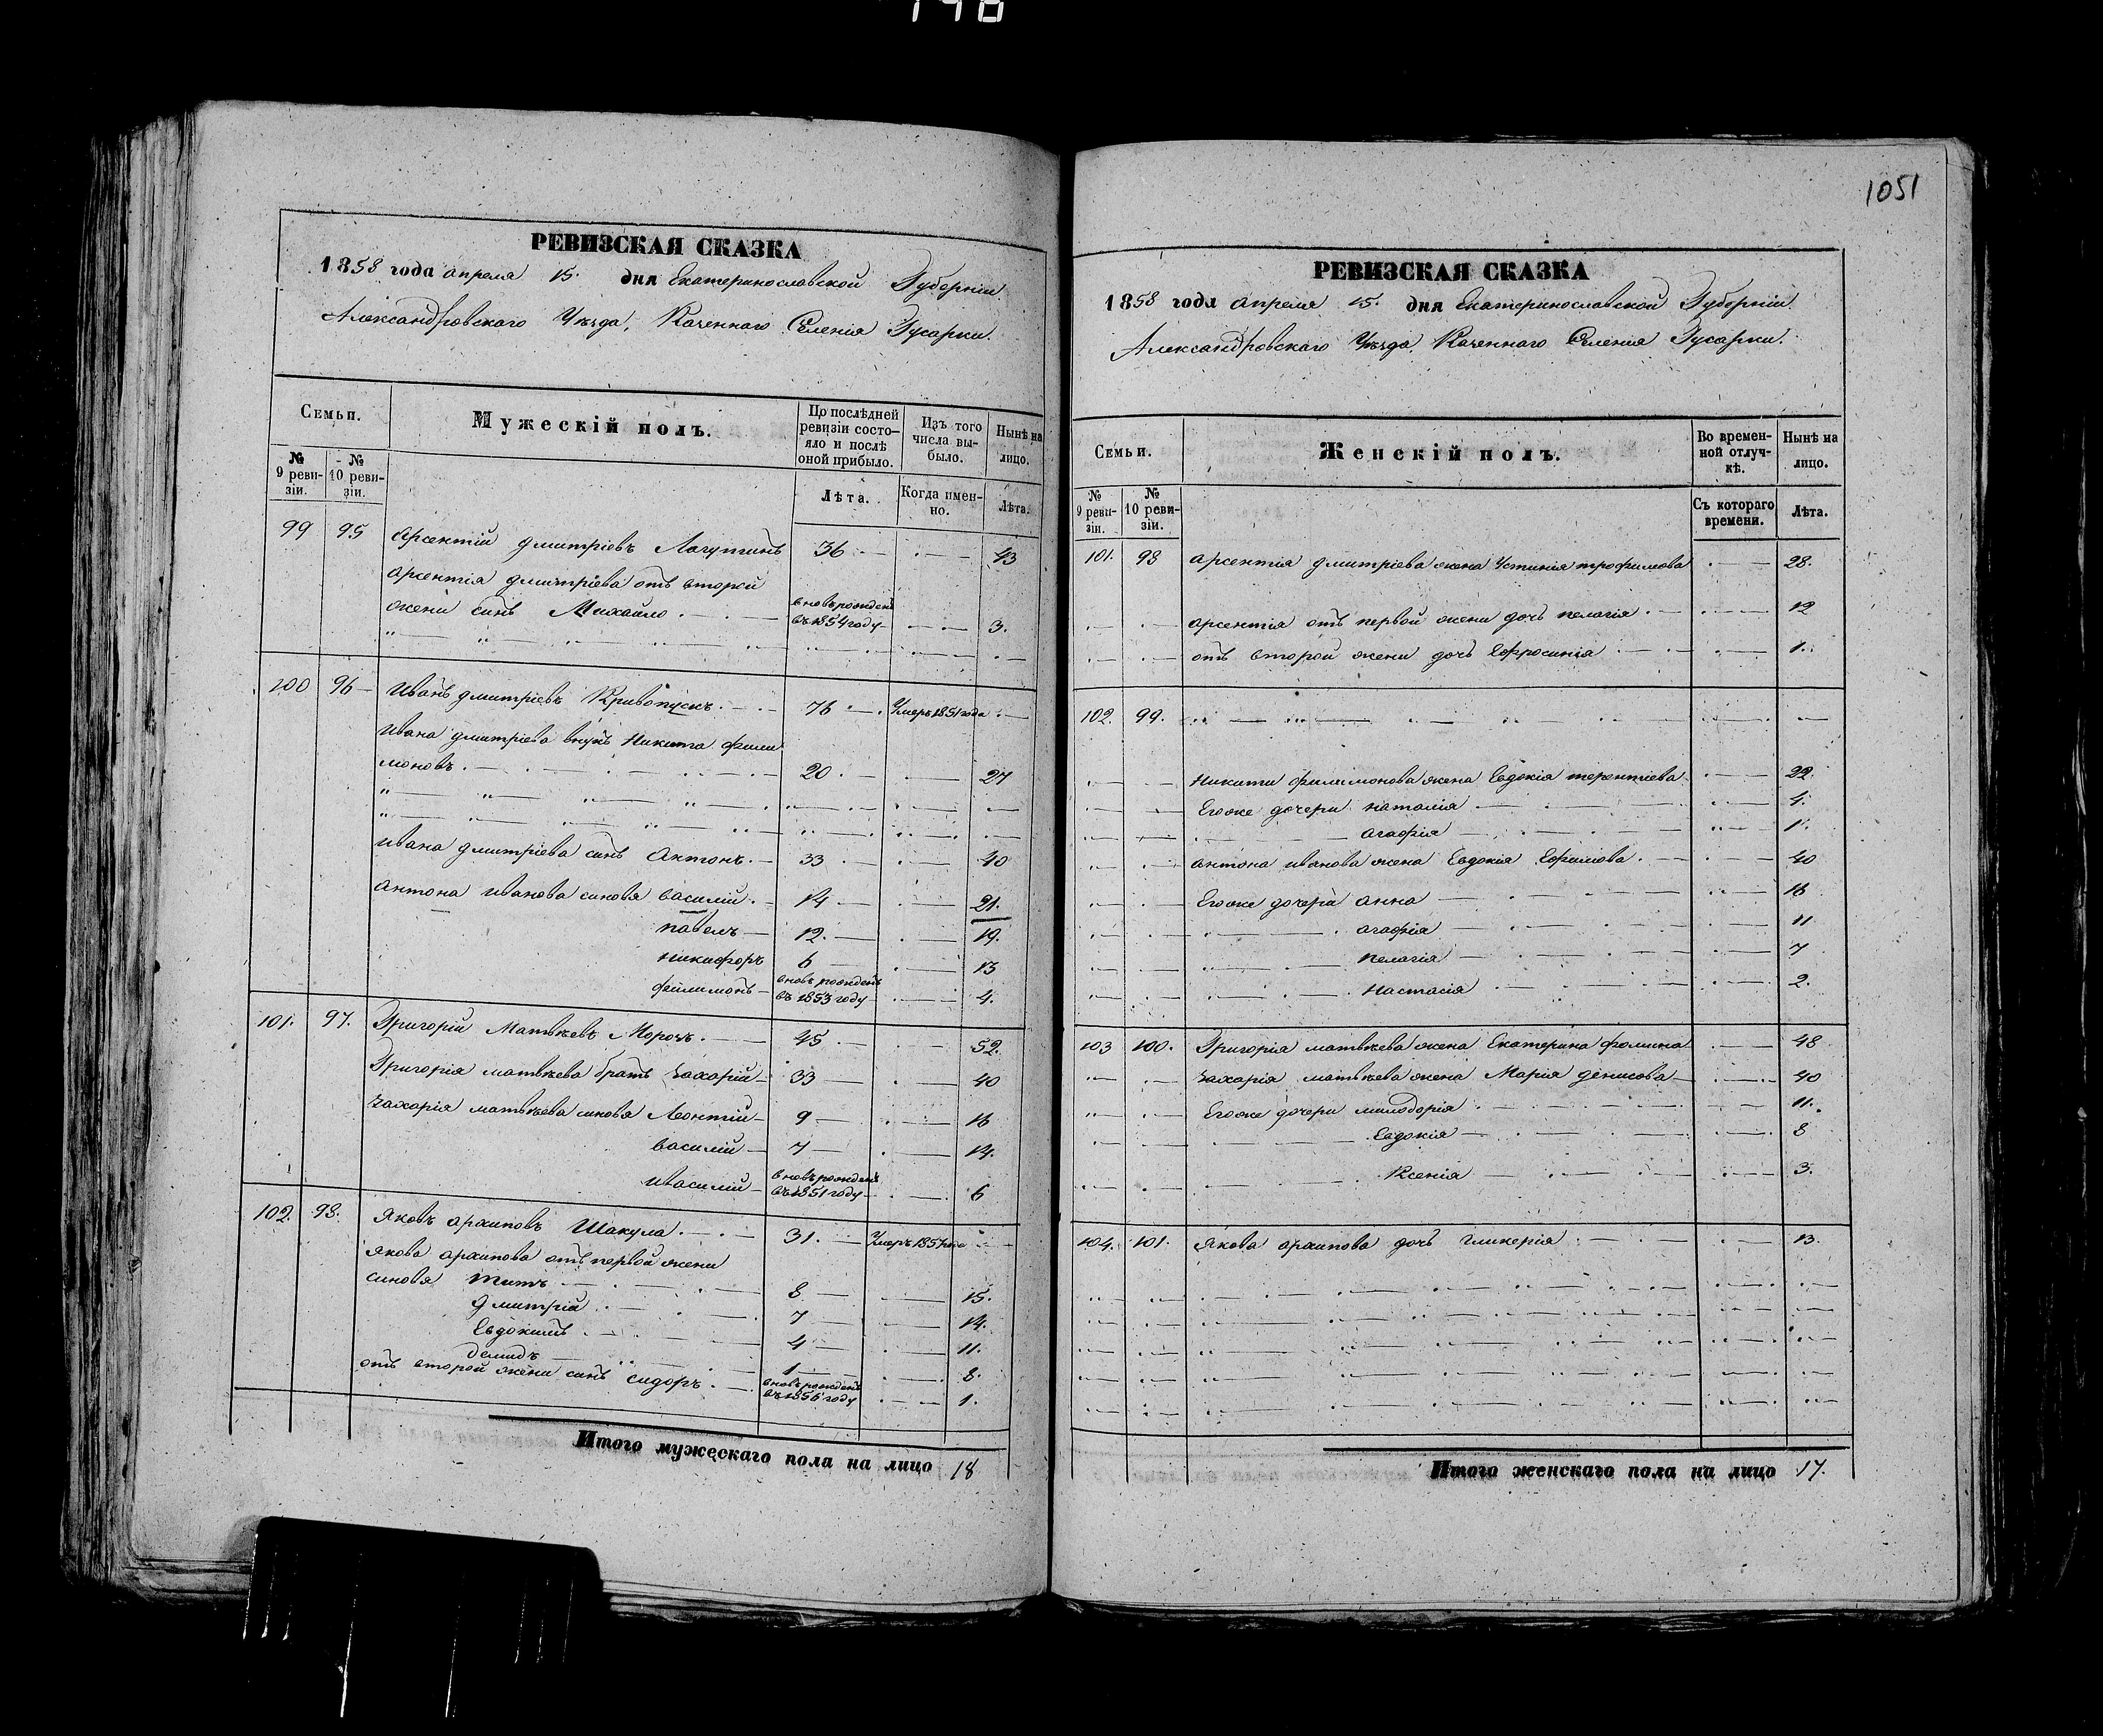 1051
РЕВИЗСКАЯ СКАЗКА
1858 года апреля 15. дня Екатеринославской Губернiи
Александровскаго Уѣзда, Казеннаго Селенiя Гусарки.
Семьи.
Мужескiй полъ.
По послѣдней ревизiи состояло и послѣ оной прибыло.
Изъ того числа выбыло.
Нынѣ на лицо.
№ 9 ревизiи.
№ 10 ревизiи.
Лѣта.
Когда именно.
Лѣта.
99 95 Арсентiй Дмитрiевъ Лагутинъ 36 43
Арсентiя Дмитрiева отъ второй
жени синъ Михайло вновь рожденъ въ 1854 году 3.
100 96 Иванъ Дмитрiевъ Кривопускъ. 76 Умеръ 1851 года
Ивана Дмитрiева внукъ Никита Фили
моновъ. 20 27
Ивана Дмитрiева синъ Антонъ. 33 40
Антона Иванова синовя Василiй. 14 21.
Павелъ 12. 19.
Никифоръ 6 13
Филимонъ вновь рожденъ въ 1853 году 4.
101. 97. Григорiй Матвѣевъ Морозъ. 45 52.
Григорiя Матвѣева братъ Захарiй 33 40
Захарiя Матвѣева синовя Леонтiй 9 16
Василiй 7 14.
Ивасилiй вновь рожденъ въ 1851 году 6
102. 98. Яковъ Архиповъ Шакула. 31. Умеръ 1857 года
Якова Архипова отъ первой жени
синовя Титъ 8 15.
Дмитрiй 7 14.
Евдокимъ 4 11.
Демидъ 1 8.
отъ второй жени синъ Сидоръ. вновь рожденъ въ 1856 году 1.
Итого мужескаго пола на лицо 18
РЕВИЗСКАЯ СКАЗКА
1858 года апреля 15. дня Екатеринославской Губернiи
Александровскаго Уѣзда, Казеннаго Селенiя Гусарки.
Семьи.
Женскiй полъ.
Во временной отлучкѣ.
Нынѣ на лицо.
№ 9 ревизiи.
№ 10 ревизiи.
Съ котораго времени.
Лѣта.
101. 98 Арсентiя Дмитрiева жена Устинiя Трофимова 28.
Арсентiя отъ первой жени дочъ Пелагiя 12
отъ второй жени дочъ Ефросинiя 1.
102. 99.
Никити Филимонова жена Евдокiя Терентiева 22.
Егоже дочери Наталiя 4.
Агафiя 1.
Антона Иванова жена Евдокiя Ефимова. 40
Егоже дочери Анна 16
Агафiя 11
Пелагiя 7
Настасiя 2.
103 100. Григорiя Матвѣева жена Екатерина Фомина 48
Захарiя Матвѣева жена Марiя Денисова 40
Егоже дочери Милодорiя 11.
Евдокiя 8
Ксенiя 3.
104. 101. Якова Архипова дочъ Гликерiя 13.
Итого женскаго пола на лицо 17.